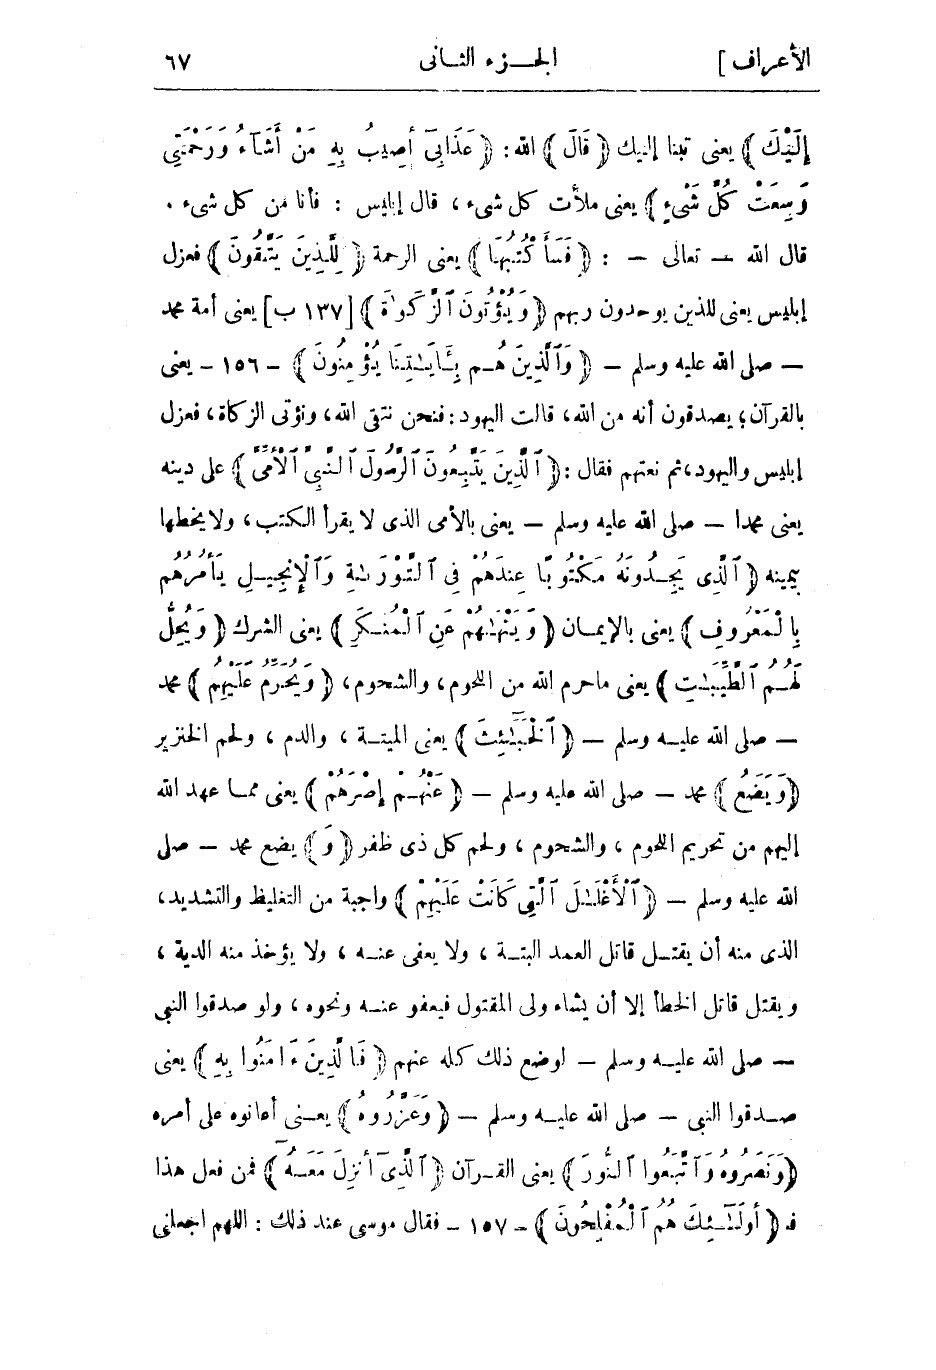 الأعراف ] الجـــزء الثــانى ٦٧
إِلَيْكَ ﴾ يعنى تبنا إليك ﴿ قَالَ ﴾ الله : ﴿ عَذَابِىٓ أُصِيبُ بِهِ مَنْ أَشَآءُ وَرَحْمَتِى
وَسِعَتْ كُلَّ شَىْءٍ ﴾ يعنى ملأت كل شىء ، قال إبليس : فأنا من كل شىء .
قال الله — تعالى — : ﴿ فَسَأَكْتُبُهَا ﴾ يعنى الرحمة ﴿ لِلَّذِينَ يَتَّقُونَ ﴾ فعزل
إبليس يعنى للذين يوحدون ربهم ﴿ وَيُؤْتُونَ ٱلزَّكَوٰةَ ﴾ [ ١٣٧ ب ] يعنى أمة محمد
— صلى الله عليه وسلم — ﴿ وَٱلَّذِينَ هُـم بِـَٔايَـٰتِنَا يُؤْمِنُونَ ﴾ — ١٥٦ — يعنى
بالقرآن؛ يصدقون أنه من الله، قالت اليهود : فنحن نتقى الله، ونؤتى الزكاة، فعزل
إبليس واليهود، ثم نعتهم فقال : ﴿ ٱلَّذِينَ يَتَّبِعُونَ ٱلرَّسُولَ ٱلنَّبِىَّ ٱلْأُمِّىَّ ﴾ على دينه
يعنى محمدا — صلى الله عليه وسلم — يعنى بالأمى الذى لا يقرأ الكتب ، ولا يخطها
بيمينه ﴿ ٱلَّذِى يَجِـدُونَهُ مَكْتُوبًا عِندَهُمْ فِى ٱلتَّوْرَىٰةِ وَٱلْإِنجِيـلِ يَأْمُرُهُم
بِالْمَعْرُوفِ ﴾ يعنى بالإيمـان ﴿ وَيَنْهَىٰهُمْ عَنِ ٱلْمُنـكَرِ ﴾ يعنى الشرك ﴿ وَيُحِلُّ
لَهُـمُ ٱلطَّيِّبَـٰتِ ﴾ يعنى ماحرم الله من اللحوم، والشحوم، ﴿ وَيُحَرِّمُ عَلَيْهِمُ ﴾ محمد
— صلى الله عليـه وسلم — ﴿ ٱلْخَبَـٰٓئِثَ ﴾ يعنى الميتـة ، والدم ، ولحم الخنزير
﴿ وَيَضَعُ ﴾ محمد — صلى الله عليه وسلم — ﴿ عَنْهُـمْ إِصْرَهُمْ ﴾ يعنى ممـا عهد الله
إليهم من تحريم اللحوم ، والشحوم ، ولحم كل ذى ظفر ﴿ وَ ﴾ يضع محمد — صلى
الله عليه وسلم — ﴿ ٱلْأَغْلَـٰلَ ٱلَّتِى كَانَتْ عَلَيْهِمْ ﴾ واجبة من التغليظ والتشديد،
الذى منه أن يقتـل قاتل العمد البتـة ، ولا يعفى عنـه ، ولا يؤخذ منه الدية ،
ويقتل قاتل الخطأ إلا أن يشاء ولى المقتول فيعفو عنـه ونحوه ، ولو صدقوا النبى
— صلى الله عليـه وسلم — لوضع ذلك كله عنهم ﴿ فَالَّذِينَ ءَامَنُوا بِهِ ﴾ يعنى
صـدقوا النبى — صلى الله عليـه وسلم — ﴿ وَعَزَّرُوهُ ﴾ يعـنى أعانوه على أمره
﴿ وَنَصَرُوهُ وَٱتَّبَعُوا ٱلنُّورَ ﴾ يعنى القـرآن ﴿ ٱلَّذِىٓ أُنزِلَ مَعَـهُٓ ﴾ فمن فعل هذا
فـ ﴿ أُولَـٰٓئِـكَ هُمُ ٱلْمُفْلِحُونَ ﴾ — ١٥٧ — فقال موسى عند ذلك : اللهم اجعلنى